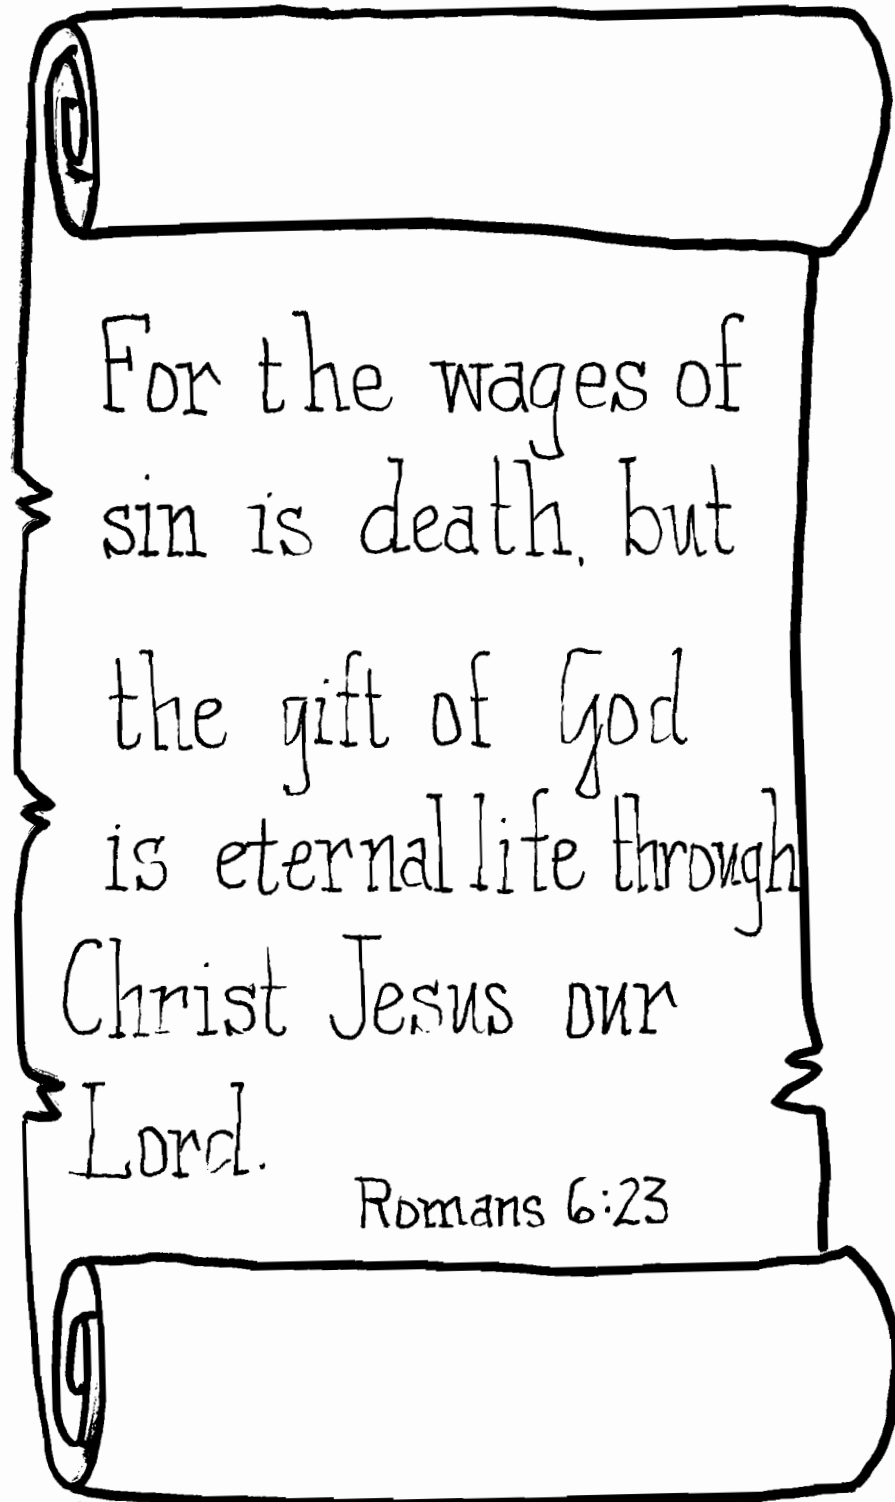 For the wages of
sin is death, but
the gift of God
is eternal life through
Christ Jesus our
Lord.
Romans 6:23